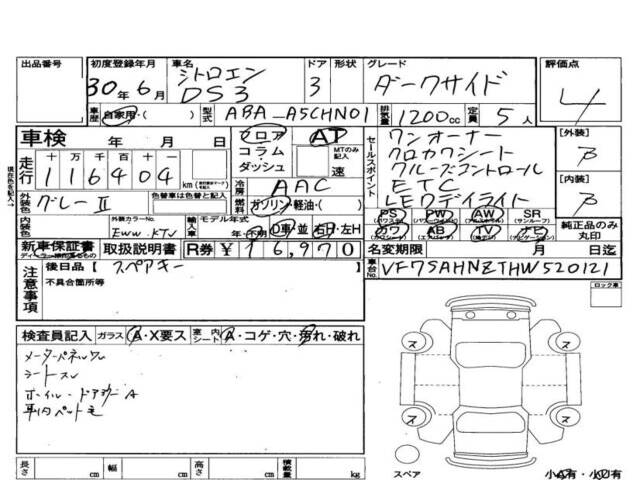 出品番号 初度登録年月 車名 ドア 形状 グレード 評価点
30年6月 シトロエン DS3 3 ダークサイド 4
車歴 自家用・( ) 型式 ABA-A5CHN01 排気量 1200cc 定員 5人
車検 年 月 日 フロア コラム・ダッシュ AT MTのみ記入 速
走行 十 万 千 百 十 一
116404 km
冷房 AAC
外装色 グレーⅡ 色替車は色替と記入 燃料 ガソリン・軽油・( )
内装色 外装カラーNo. EWW.KTV 輸入車 モデル年式 年(不明) D車・並 右H・左H
セールスポイント
ワンオーナー
クロカワシート
クルーズコントロール
ETC
LEDデイライト
[外装]
[内装]
PS PW AW SR (サンルーフ)
カワ AB TV ナビ
純正品のみ丸印
新車保証書 取扱説明書 R券 ¥16,970 名変期限 月 日迄
車台No. VF7SAHNZTHW520121
注意事項 後日品【 スペアキー
不具合箇所等
ロック車
検査員記入 ガラス A・X要ス 室内シート A・コゲ・穴・汚れ・破れ
メーターパネルスレ
シートスレ
ホイール・ドアミラーA
車内ペット毛
ス ス
ス ス
長さ cm 幅 cm 高さ cm 積載量 kg
スペア